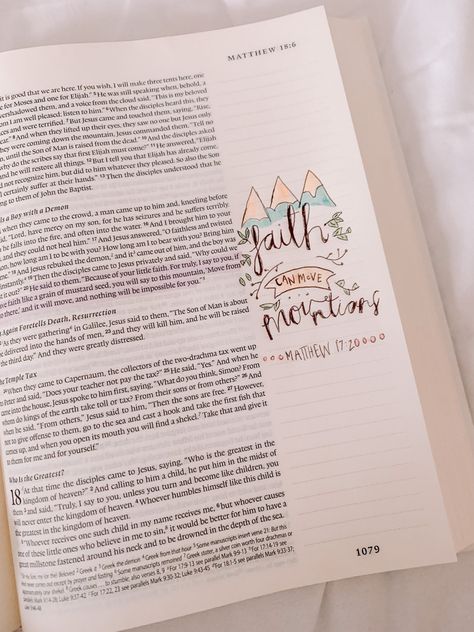 MATTHEW 18:6
it is good that we are here. If you wish, I will make three tents here, one
for Moses and one for Elijah." 5 He was still speaking when, behold, a
overshadowed them, and a voice from the cloud said, "This is my beloved
I am well pleased; listen to him." 6 When the disciples heard this, they
and were terrified. 7 But Jesus came and touched them, saying, "Rise,
fear." 8 And when they lifted up their eyes, they saw no one but Jesus only.
were coming down the mountain, Jesus commanded them, "Tell no
until the Son of Man is raised from the dead." 10 And the disciples asked
why do the scribes say that first Elijah must come?" 11 He answered, "Elijah
and he will restore all things. 12 But I tell you that Elijah has already come,
not recognize him, but did to him whatever they pleased. So also the Son
certainly suffer at their hands." 13 Then the disciples understood that he
to them of John the Baptist.
a Boy with a Demon
when they came to the crowd, a man came up to him and, kneeling before
"Lord, have mercy on my son, for he has seizures and he suffers terribly.
he falls into the fire, and often into the water. 16 And I brought him to your
and they could not heal him." 17 And Jesus answered, "O faithless and twisted
how long am I to be with you? How long am I to bear with you? Bring him
18 And Jesus rebuked the demon, and it came out of him, and the boy was
instantly. 19 Then the disciples came to Jesus privately and said, "Why could we
it out?" 20 He said to them, "Because of your little faith. For truly, I say to you, if
faith like a grain of mustard seed, you will say to this mountain, 'Move from
there,' and it will move, and nothing will be impossible for you."
Again Foretells Death, Resurrection
As they were gathering in Galilee, Jesus said to them, "The Son of Man is about
be delivered into the hands of men, 23 and they will kill him, and he will be raised
the third day." And they were greatly distressed.
The Temple Tax
When they came to Capernaum, the collectors of the two-drachma tax went up
and said, "Does your teacher not pay the tax?" 25 He said, "Yes." And when he
came into the house, Jesus spoke to him first, saying, "What do you think, Simon? From
whom do kings of the earth take toll or tax? From their sons or from others?" 26 And
when he said, "From others," Jesus said to him, "Then the sons are free. 27 However,
not to give offense to them, go to the sea and cast a hook and take the first fish that
comes up, and when you open its mouth you will find a shekel. Take that and give it
to them for me and for yourself."
Who Is the Greatest?
18 At that time the disciples came to Jesus, saying, "Who is the greatest in the
kingdom of heaven?" 2 And calling to him a child, he put him in the midst of
them 3 and said, "Truly, I say to you, unless you turn and become like children, you
will never enter the kingdom of heaven. 4 Whoever humbles himself like this child is
the greatest in the kingdom of heaven.
5 "Whoever receives one such child in my name receives me, 6 but whoever causes
one of these little ones who believe in me to sin, it would be better for him to have a
great millstone fastened around his neck and to be drowned in the depth of the sea.
faith
CAN MOVE
mountians
MATTHEW 17:20
1079